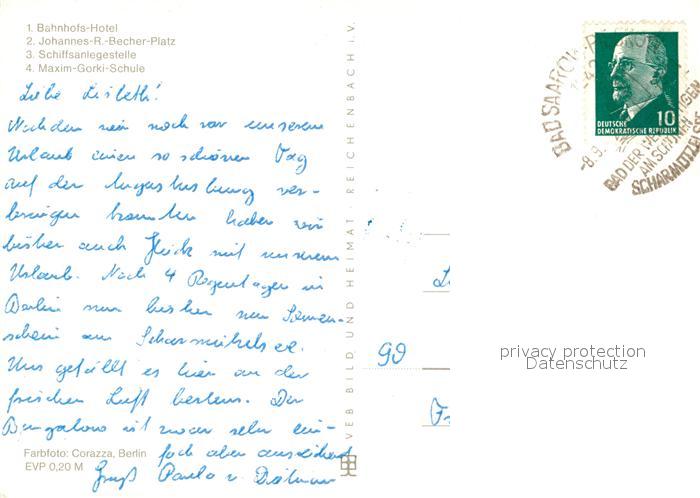 1. Bahnhofs-Hotel
2. Johannes-R.-Becher-Platz
3. Schiffsanlegestelle
4. Maxim-Gorki-Schule
Liebe Lisbeth!
Nachdem wir noch vor unserem
Urlaub einen so schönen Tag
auf der Augustusburg ver-
bringen konnten haben wir
bisher auch Glück mit unserem
Urlaub. Nach 4 Regentagen in
Berlin nun bisher nur Sonnen-
schein am Scharmützelsee.
Uns gefällt es hier an der
frischen Luft bestens. Der
Bungalow ist zwar sehr ein-
fach aber ausreichend
Gruß Paula u. Dietmar
Farbfoto: Corazza, Berlin
EVP 0,20 M
VEB BILD UND HEIMAT · REICHENBACH i.V.
99
BAD SAAROW-PIESKOW
-8.9.
BAD DER WERKTÄTIGEN
AM SCHÖNEN
SCHARMÜTZELSEE
10
DEUTSCHE
DEMOKRATISCHE REPUBLIK
privacy protection
Datenschutz